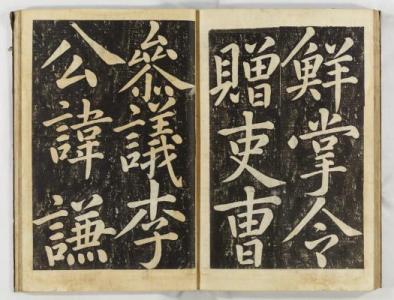 鮮掌令
贈吏曺
叅議李
公諱謙